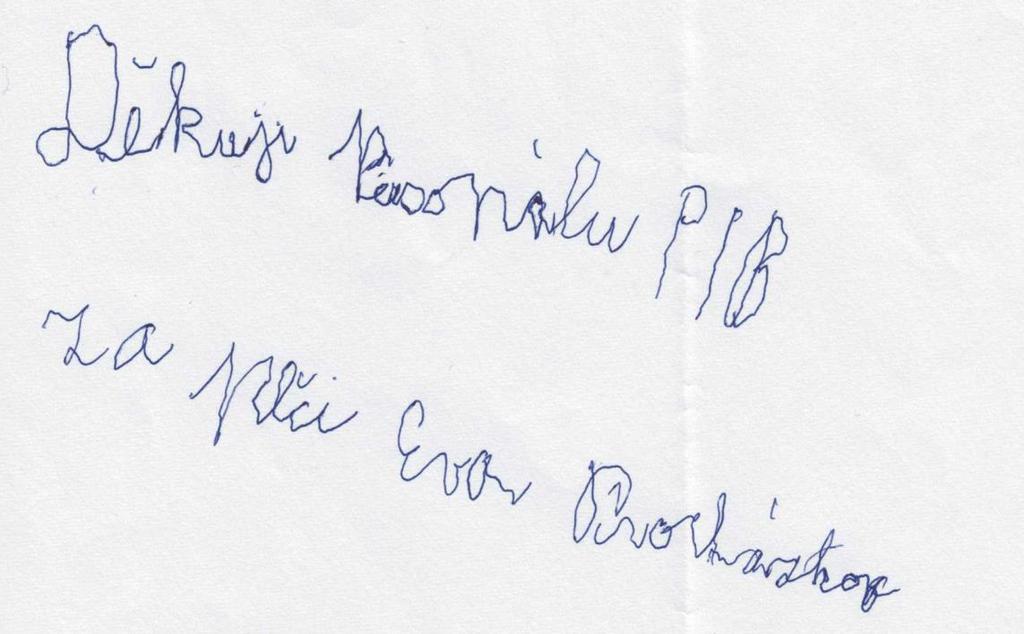 Děkuji Personálu PIB
za péči Eva Procházková